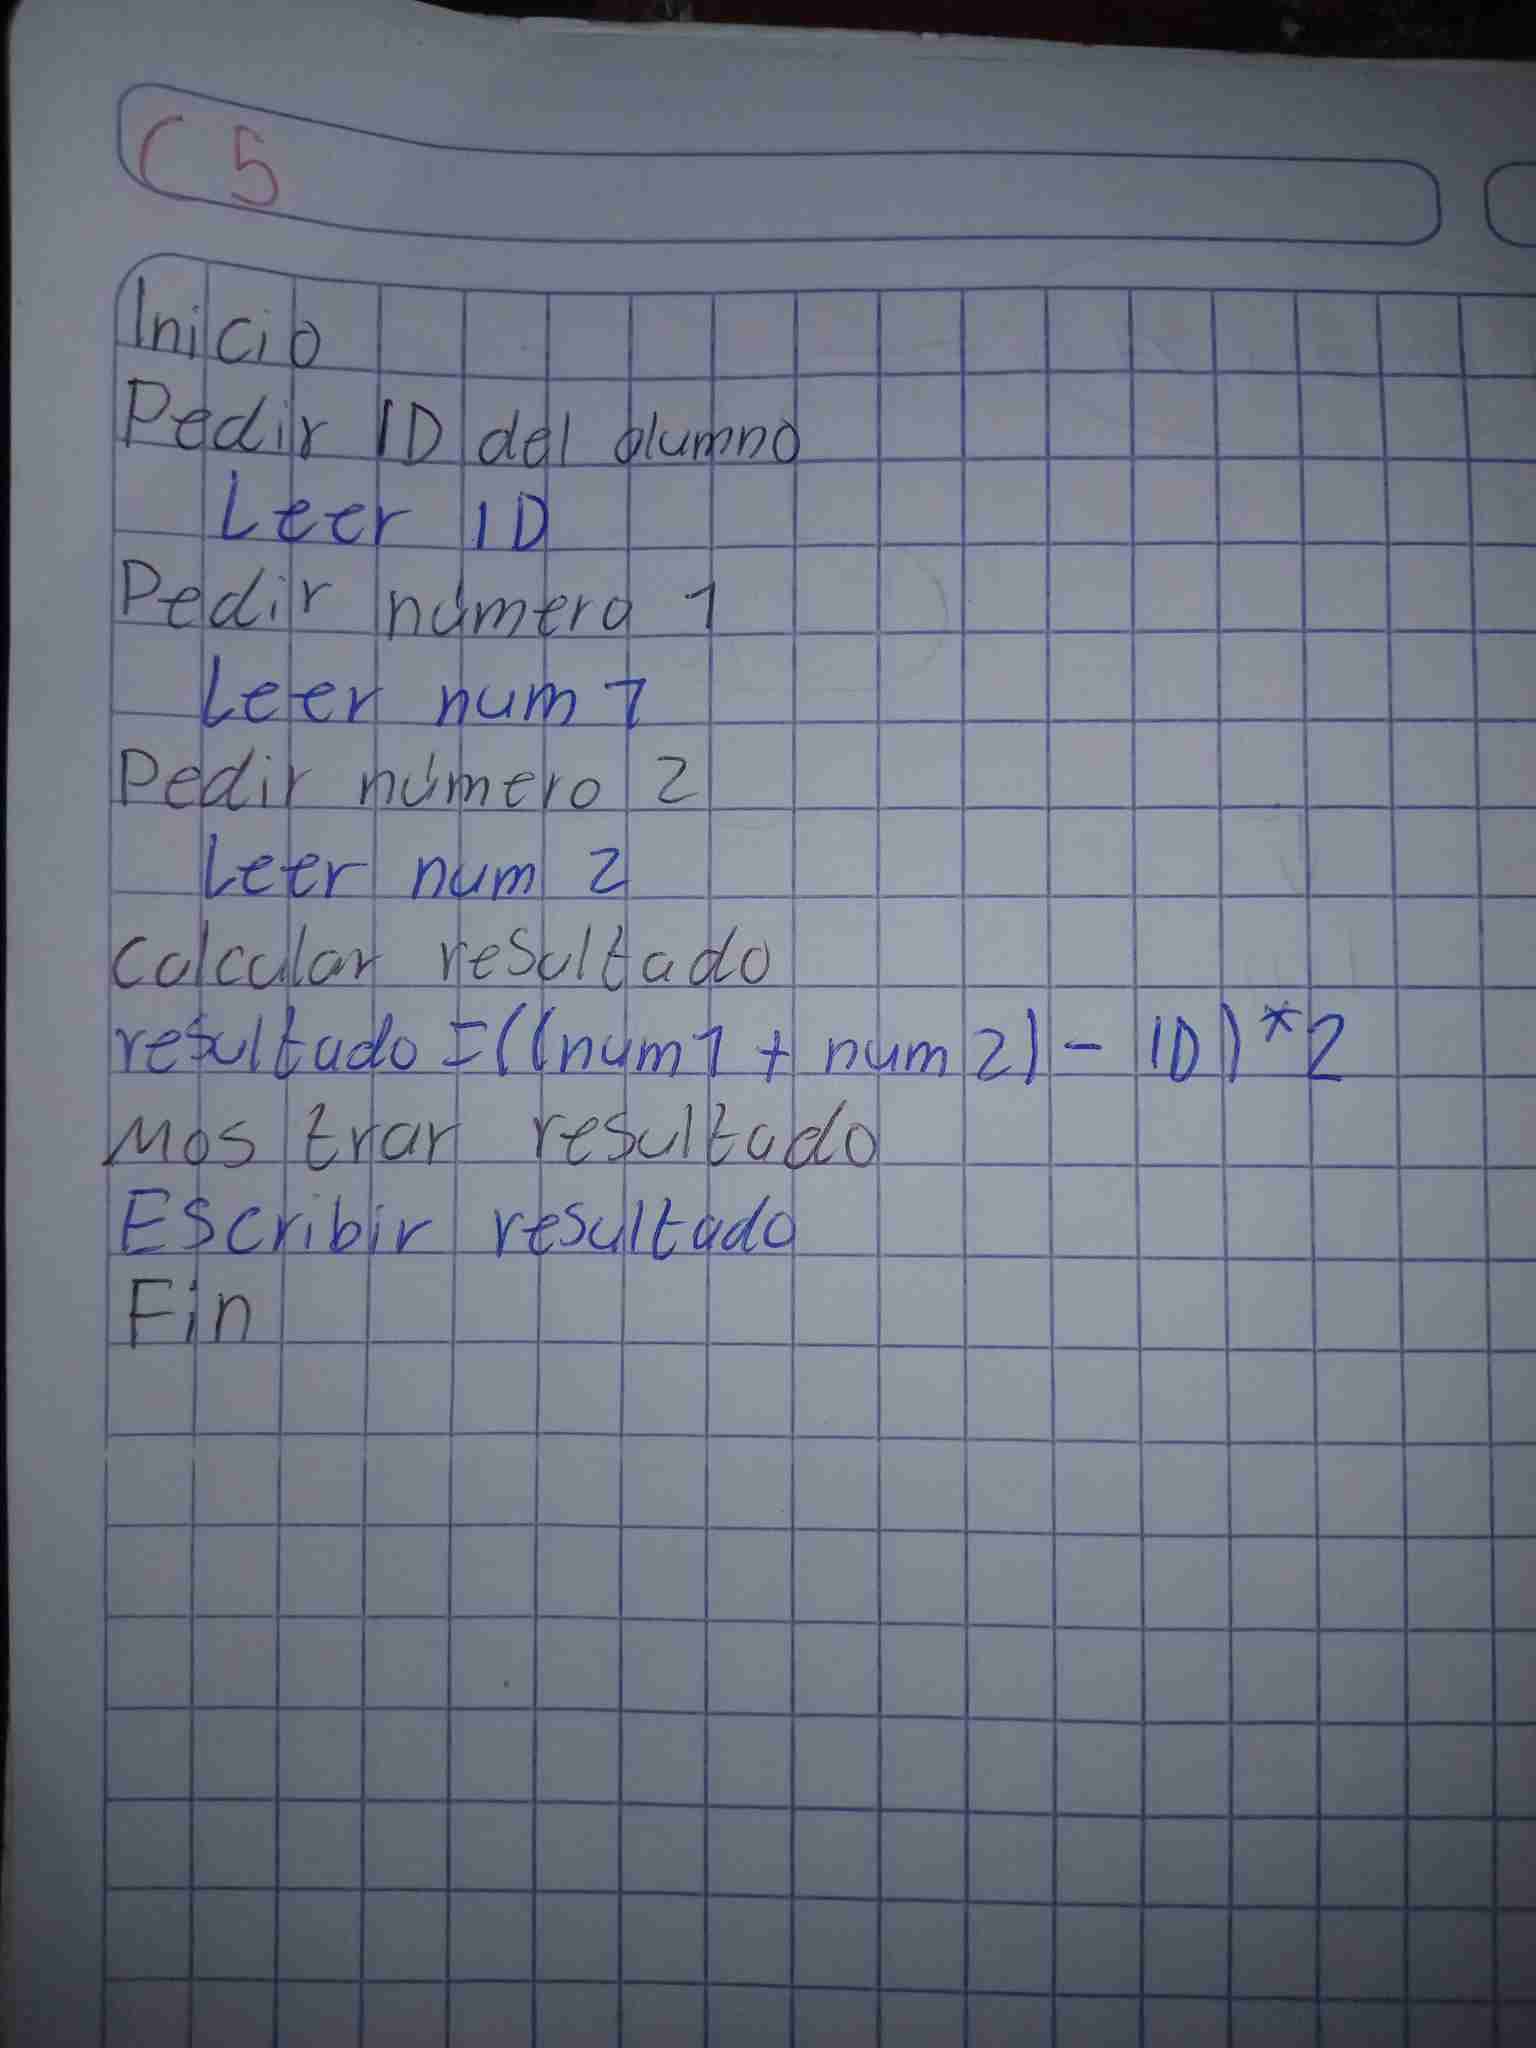 C 5
Inicio
Pedir ID del alumno
Leer ID
Pedir número 1
Leer num 1
Pedir número 2
Leer num 2
Calcular resultado
resultado = ((num 1 + num 2) - ID) * 2
Mostrar resultado
Escribir resultado
Fin